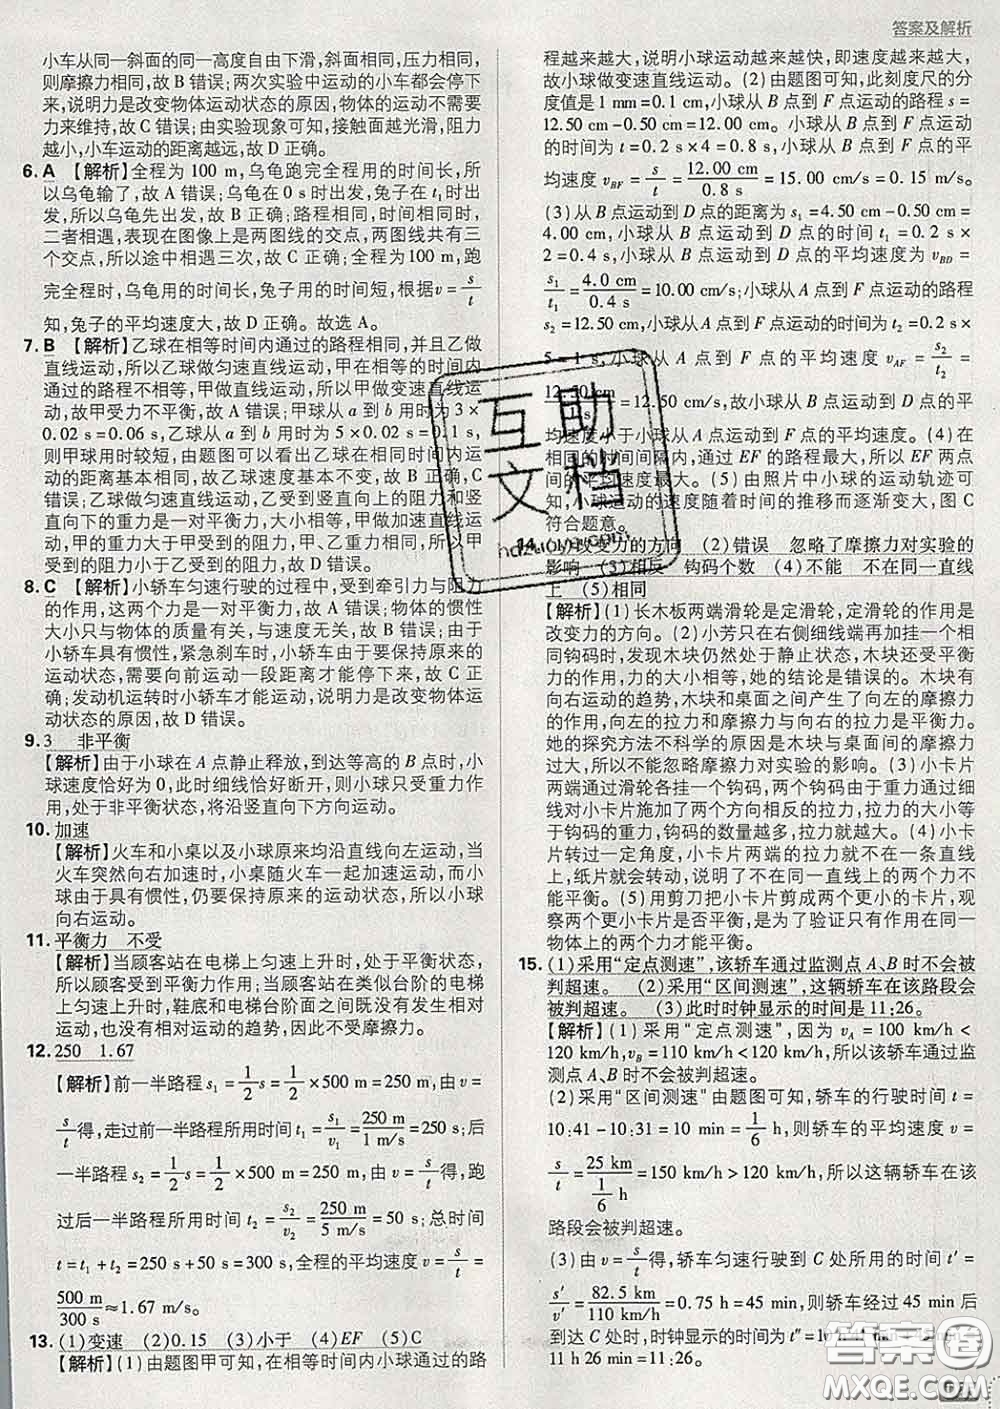 答案及解析
小车从同一斜面的同一高度自由下滑,斜面相同,压力相同,
则摩擦力相同,故 B 错误;两次实验中运动的小车都会停下
来,说明力是改变物体运动状态的原因,物体的运动不需要
力来维持,故 C 错误;由实验现象可知,接触面越光滑,阻力
越小,小车运动的距离越远,故 D 正确。
6. A 【解析】全程为 100 m,乌龟跑完全程用的时间长,所以
乌龟输了,故 A 错误;乌龟在 0 s 时出发,兔子在 t₁ 时出
发,所以乌龟先出发,故 B 正确;路程相同,时间相同时,
二者相遇,表现在图像上是两图线的交点,两图线共有
三个交点,所以途中相遇三次,故 C 正确;全程为100 m,跑
完全程时,乌龟用的时间长,兔子用的时间短,根据v = s/t
知,兔子的平均速度大,故 D 正确。故选 A。
7. B 【解析】乙球在相等时间内通过的路程相同,并且乙做
直线运动,所以乙球做匀速直线运动,甲在相等的时间内
通过的路程不相等,甲做直线运动,所以甲做变速直线运
动,故甲受力不平衡,故 A 错误;甲球从 a 到 b 用时 3 ×
0.02 s = 0.06 s,乙球从 a 到 b 用时 5 × 0.02 s = 0.1 s,
则甲球用时较短,由图可以看出乙球在相同时间内运动
的距离基本相同,故乙球速度基本不变,故 B 正确,C
错误;乙球做匀速直线运动,乙受到竖直向上的阻力和竖
直向下的重力是一对平衡力,大小相等,甲做加速直线运
动,甲的重力大于甲受到的阻力,甲、乙重力相同,所以
甲受到的阻力小于乙受到的阻力,故 D 错误。
8. C 【解析】小轿车匀速行驶的过程中,受到牵引力与阻力
的作用,这两个力是一对平衡力,故 A 错误;物体的惯性
大小只与物体的质量有关,与速度无关,故 B 错误;由于
小轿车具有惯性,紧急刹车时,小轿车由于要保持原来的
运动状态,需要向前运动一段距离才能停下来,故 C 正
确;发动机运转时小轿车才能运动,说明力是改变物体运
动状态的原因,故 D 错误。
9. 3 非平衡
【解析】由于小球在 A 点静止释放,到达等高的 B 点时,小
球速度恰好为 0,此时细线恰好断开,则小球只受重力作
用,处于非平衡状态,将沿竖直向下方向运动。
10. 加速
【解析】火车和小桌以及小球原来均沿直线向左运动,当
火车突然向右加速时,小桌随火车一起加速运动,而小球
由于具有惯性,仍要保持原来的运动状态,所以小球
向右运动。
11. 平衡力 不受
【解析】当顾客站在电梯上匀速上升时,处于平衡状态,
所以顾客受到平衡力作用;当顾客站在类似台阶的电梯
上匀速上升时,鞋底和电梯台阶面之间既没有发生相对
运动,也没有相对运动的趋势,因此不受摩擦力。
12. 250 1.67
【解析】前一半路程 s₁ = 1/2 s = 1/2 × 500 m = 250 m,由 v =
s/t 得,走过前一半路程所用时间 t₁ = s₁/v₁ = 250 m/1 m/s = 250 s;后
一半路程 s₂ = 1/2 s = 1/2 × 500 m = 250 m,由 v = s/t 得,跑
过后一半路程所用时间 t₂ = s₂/v₂ = 250 m/5 m/s = 50 s;总时间
t = t₁ + t₂ = 250 s + 50 s = 300 s,全程的平均速度 v = s/t =
500 m/300 s ≈ 1.67 m/s。
13. (1)变速 (2)0.15 (3)小于 (4)EF (5)C
【解析】(1)由题图甲可知,在相等时间内小球通过的路
程越来越大,说明小球运动越来越快,即速度越来越大,
故小球做变速直线运动。(2)由题图可知,此刻度尺的分
度值是 1 mm = 0.1 cm,小球从 B 点到 F 点运动的路程 s =
12.50 cm - 0.50 cm = 12.00 cm。小球从 B 点到 F 点运动
的时间为 t = 0.2 s × 4 = 0.8 s,小球从 B 点到 F 点的平
均速度 v_BF = s/t = 12.00 cm/0.8 s = 15.00 cm/s = 0.15 m/s。
(3)从 B 点运动到 D 点的距离为 s₁ = 4.50 cm - 0.50 cm =
4.00 cm,小球从 B 点运动到 D 点的时间 t₁ = 0.2 s ×
2 = 0.4 s,小球从 B 点运动到 D 点的平均速度为 v_BD =
s₁/t₁ = 4.0 cm/0.4 s = 10.00 cm/s;小球从A点运动到F点的路程
s₂ = 12.50 cm,小球从 A 点到 F 点运动的时间为 t₂ = 0.2 s ×
5 = 1 s,小球从 A 点到 F 点的平均速度 v_AF = s₂/t₂ =
12.50 cm/1 s = 12.50 cm/s,故小球从 B 点运动到 D 点的平
均速度小于小球从 A 点到 F 点的平均速度。(4)在
相同的时间间隔内,通过 EF 的路程最大,所以 EF 两点
间的平均速度最大。(5)由照片中小球的运动轨迹可
知,小球运动的速度随着时间的推移而逐渐变大,图 C
符合题意。
14. (1)改变力的方向 (2)错误 忽略了摩擦力对实验的
影响 (3)相反 钩码个数 (4)不能 不在同一直线
上 (5)相同
【解析】(1)长木板两端滑轮是定滑轮,定滑轮的作用是
改变力的方向。(2)小芳只在右侧细线端再加挂一个相
同钩码时,发现木块仍然处于静止状态,木块还受平衡
力的作用,力的大小相等,她的结论是错误的。木块
有向右运动的趋势,木块和桌面之间产生了向左的摩擦力
的作用,向左的拉力和摩擦力与向右的拉力是平衡力。
她的探究方法不科学的原因是木块与桌面间的摩擦力
较大,所以不能忽略摩擦力对实验的影响。(3)小卡片
两端通过滑轮各挂一个钩码,两个钩码由于重力通过细
线对小卡片施加了两个方向相反的拉力,拉力的大小等
于钩码的重力,钩码的数量越多,拉力就越大。(4)小卡
片转过一定角度,小卡片两端的拉力就不在一条直线
上,纸片就会转动,说明了不在同一直线上的两个力不
能平衡。(5)用剪刀把小卡片剪成两个更小的卡片,观
察两个更小卡片是否平衡,是为了验证只有作用在同一
物体上的两个力才能平衡。
15. (1)采用“定点测速”,该轿车通过监测点 A、B 时不会被
判超速。 (2)采用“区间测速”,这辆轿车在该路段会
被判超速。 (3)此时时钟显示的时间是 11:26。
【解析】(1)采用“定点测速”,因为 v_A = 100 km/h <
120 km/h,v_B = 110 km/h < 120 km/h,所以该轿车通过监
测点 A、B 时不会被判超速。
(2)采用“区间测速”由题图可知,轿车的行驶时间 t =
10:41 - 10:31 = 10 min = 1/6 h,则轿车的平均速度 v =
s/t = 25 km/(1/6 h) = 150 km/h > 120 km/h,所以这辆轿车在该
路段会被判超速。
(3)由 v = s/t 得,轿车匀速行驶到 C 处所用的时间 t′ =
s′/v′ = 82.5 km/110 km/h = 0.75 h = 45 min,则轿车经过 45 min
到达 C 处时,时钟显示的时间 t″ = 10 h 41 min + 45 min =
11 h 26 min。
互助文档
hdzuoye.com
答案圈
MXQE.COM